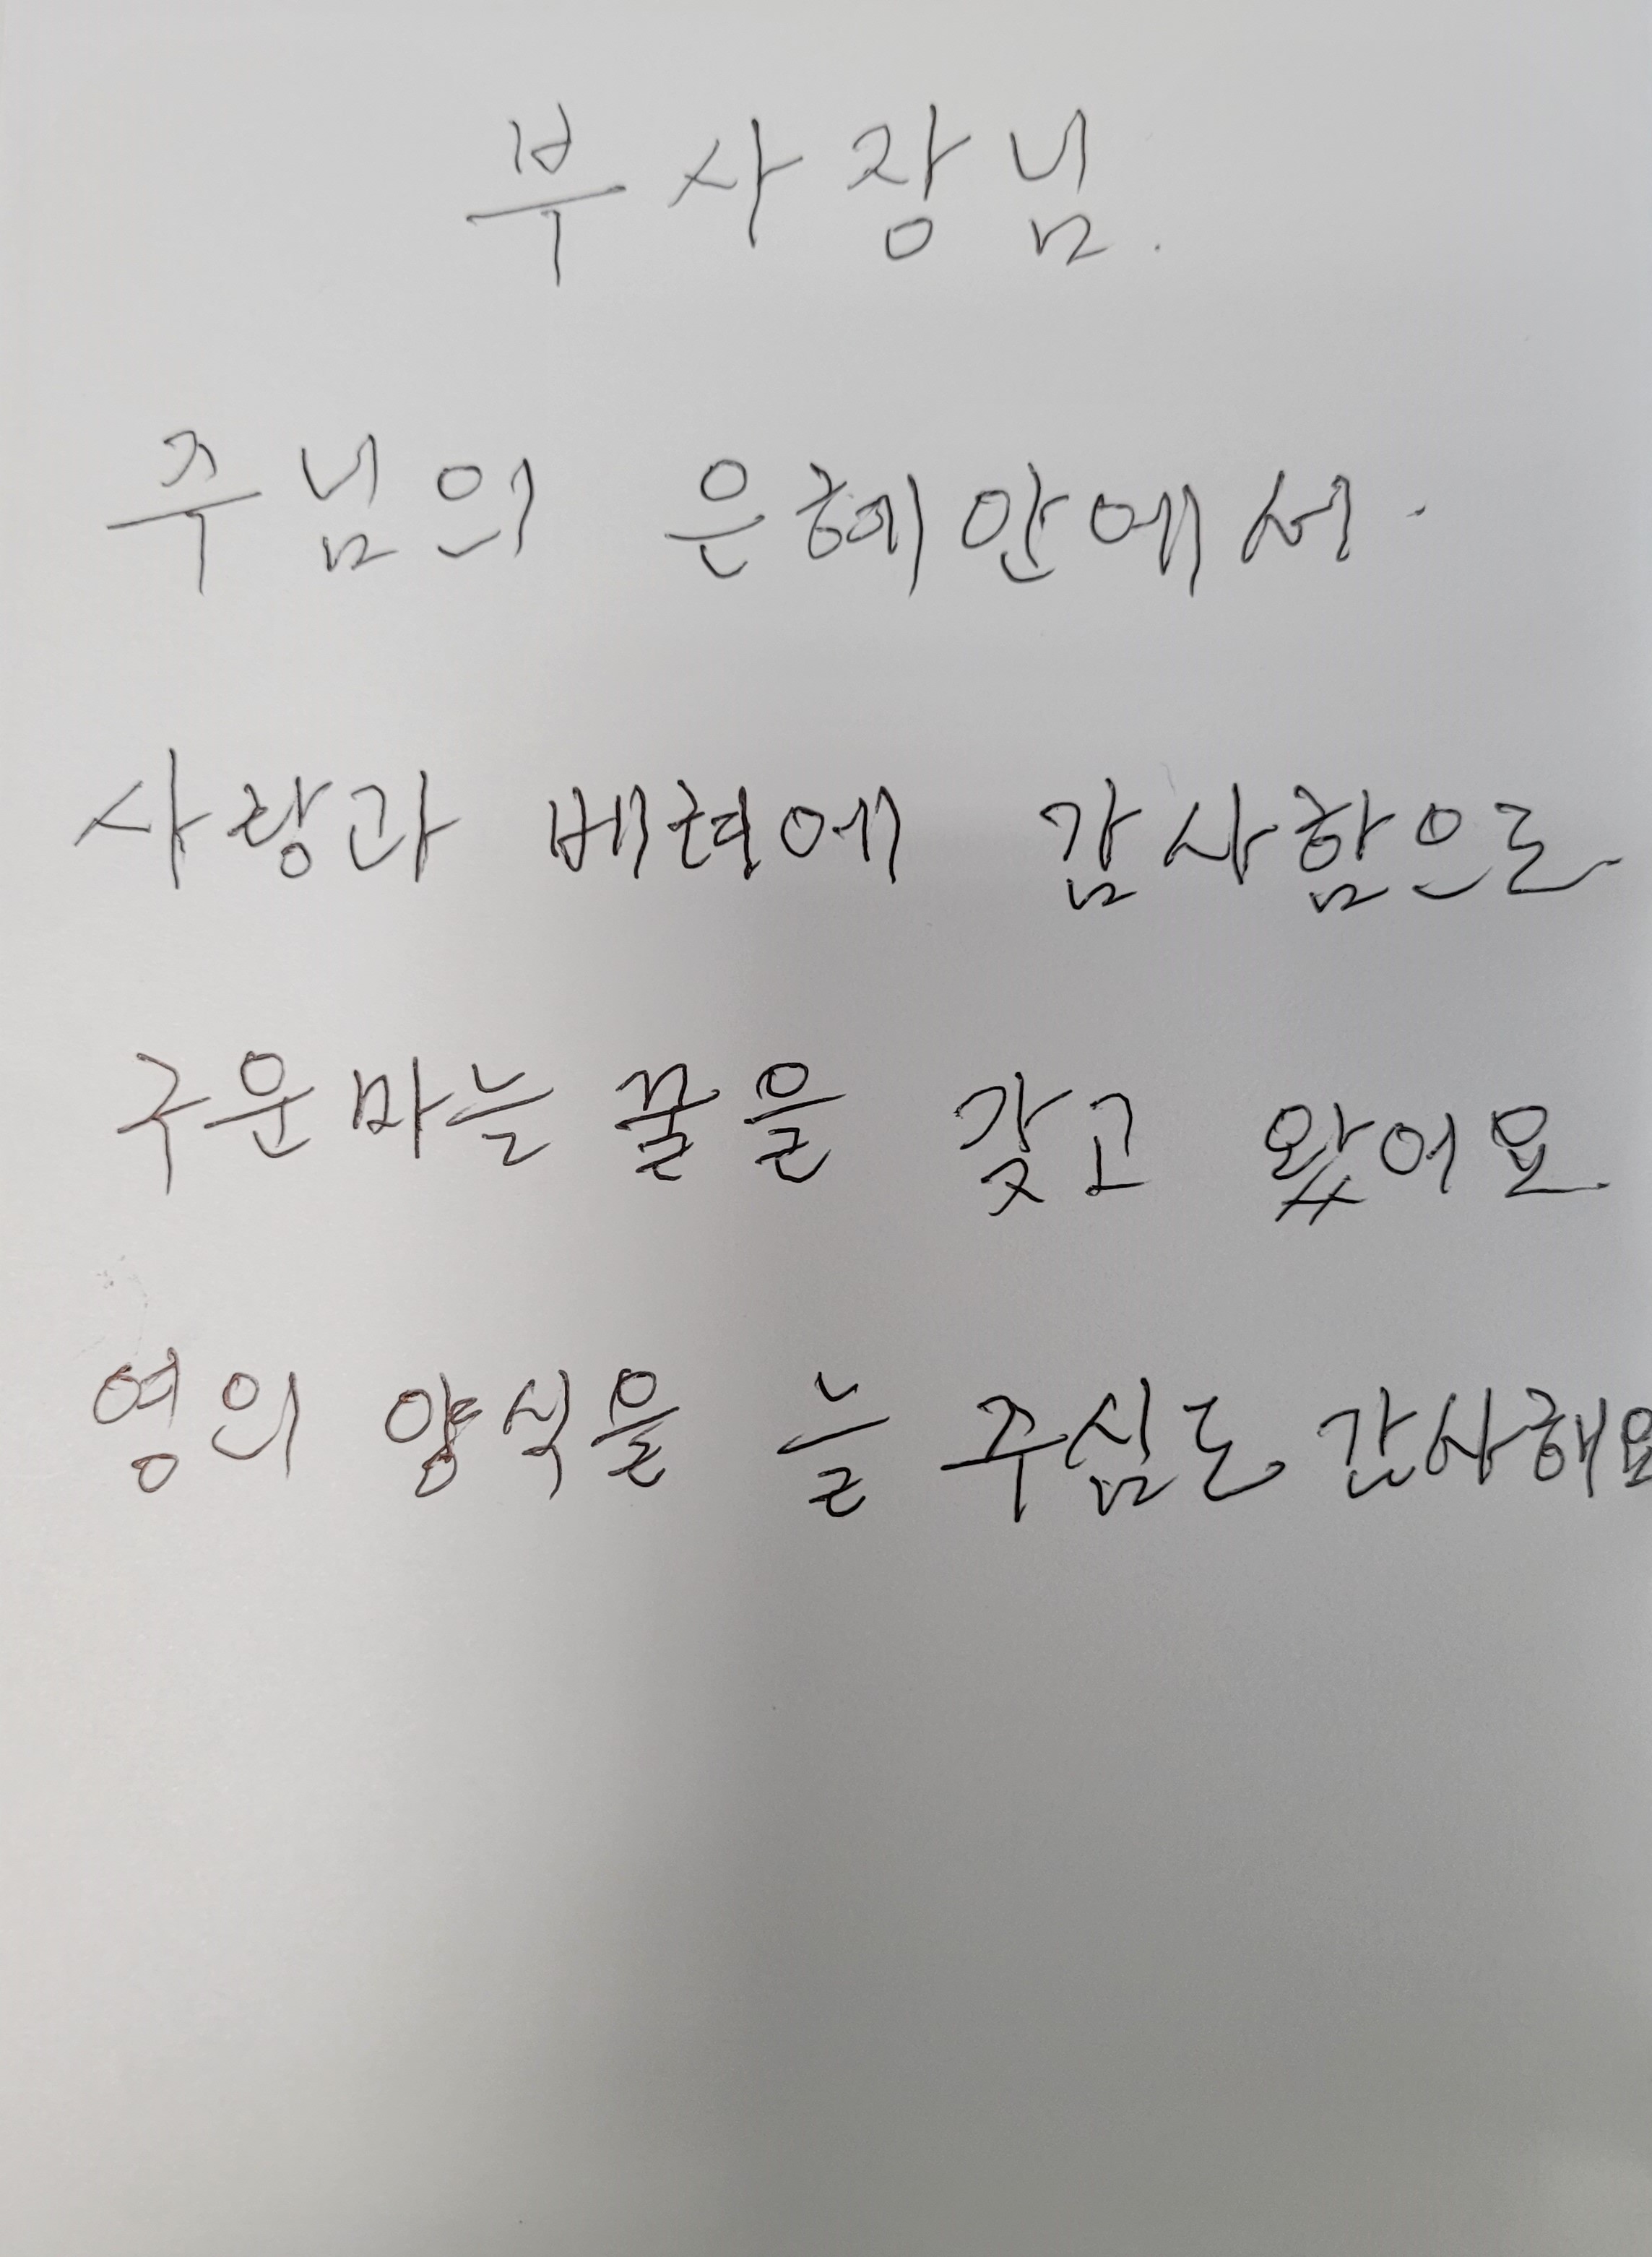 부사장님.
주님의 은혜안에서.
사랑과 베려에 감사함으로
구운마늘꿀을 갖고 왔어요.
영의 양식을 늘 주심도 감사해요